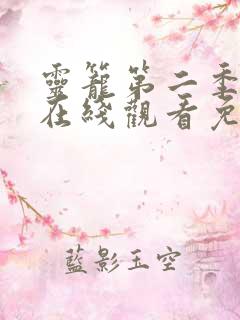 靈籠第二季
在綫觀看免
藍影玉空